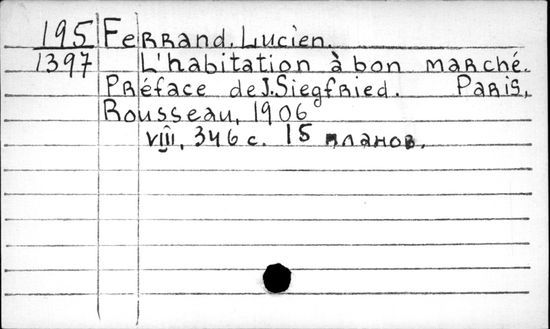 195 Ferrand, Lucien.
1397 L'habitation à bon marché.
Préface de J. Siegfried. Paris,
Rousseau, 1906
VIII, 346 с. 15 планов.